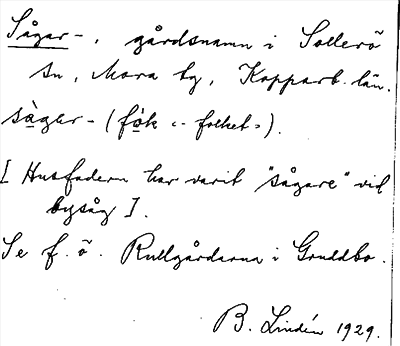 Sågar-, gårdsnamn i Sollerö
sn, Mora tg, Kopparb. län.
sàgar- (fók "folket").
[Husfadern har varit "sågare" vid
bysåg].
Se f. ö. Rullgårdarna i Gruddbo.
B. Lindén 1929.